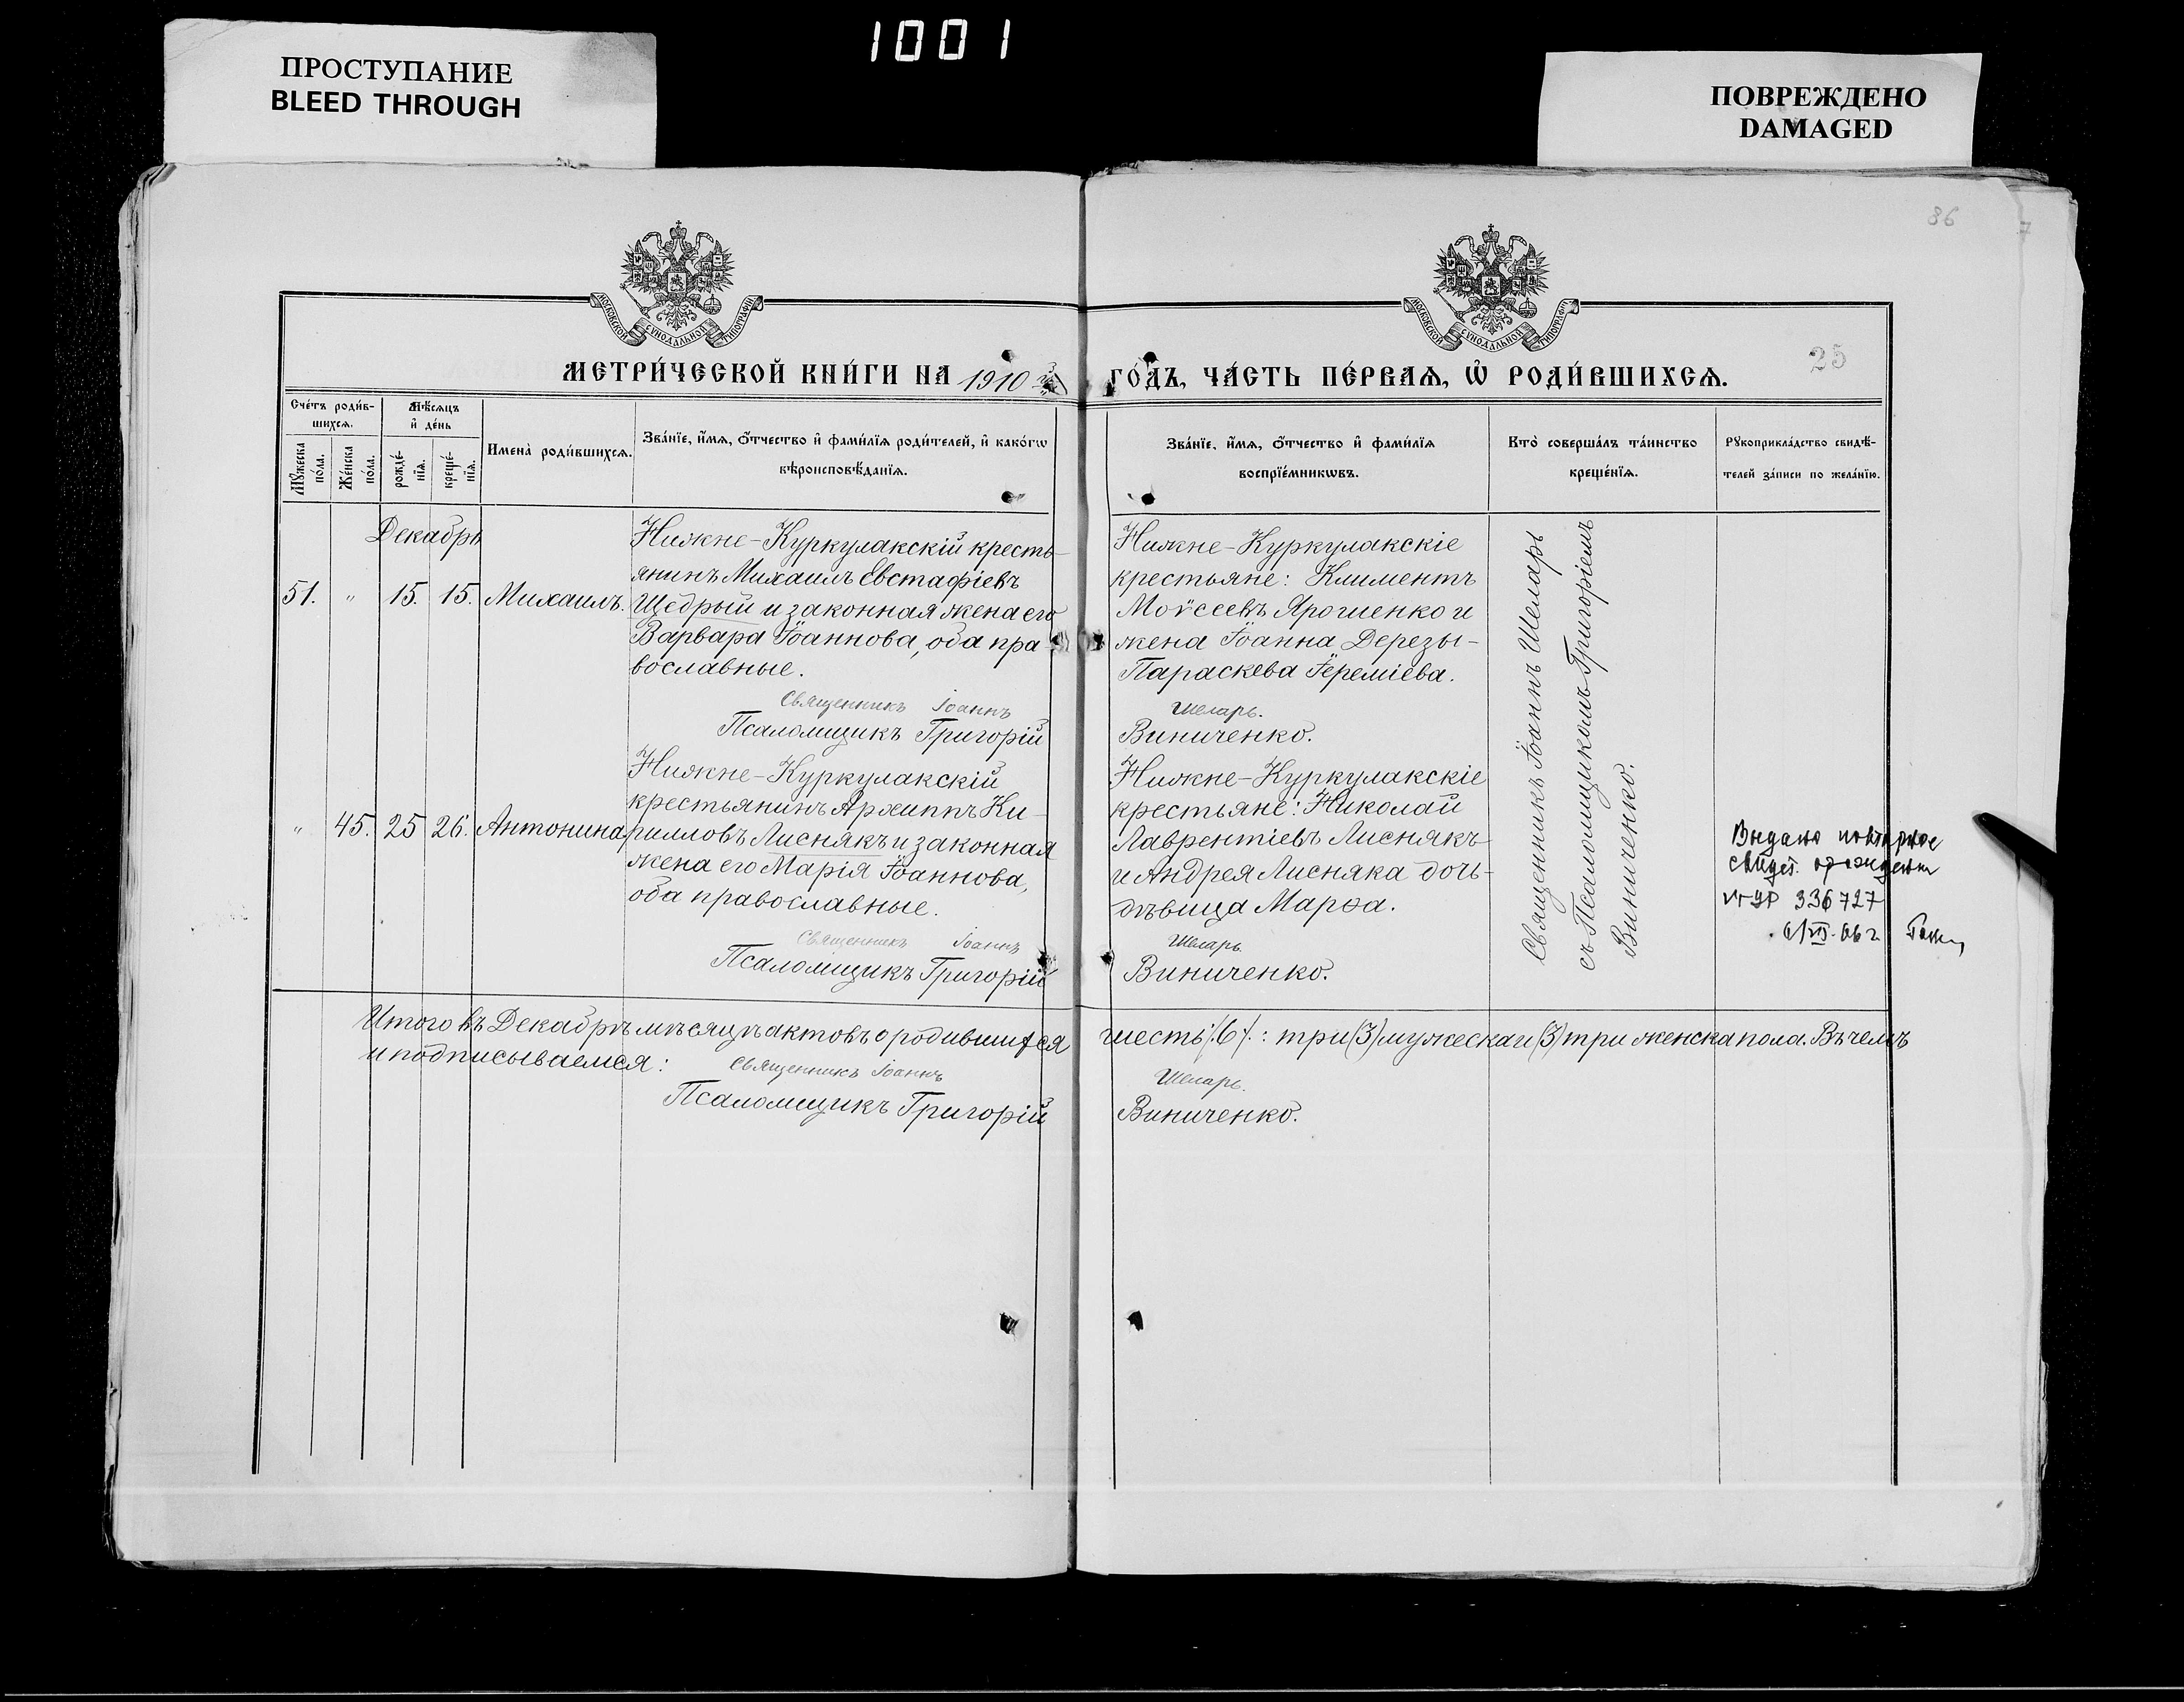 1001
ПРОСТУПАНИЕ
BLEED THROUGH
ПОВРЕЖДЕНО
DAMAGED
86
7
МОСКОВСКОЙ СУНОДАЛЬНОЙ ТИПОГРАФІИ
МОСКОВСКОЙ СУНОДАЛЬНОЙ ТИПОГРАФІИ
25
МЕТРИ́ЧЕСКОЙ КНИ́ГИ НА 1910 й
ГО́ДЪ, ЧА́СТЬ ПЕ́РВАѦ, Ѽ РОДИ́ВШИХСѦ.
Сче́тъ роди́в-
шихсѧ.
Мѣ́сѧцъ
и҆ де́нь
Мꙋ́жеска
по́ла.
Же́нска
по́ла.
рожде́-
нїѧ.
креще́-
нїѧ.
Имена̀ роди́вшихсѧ.
Зва́нїе, и҆́мѧ, ѻ҆́тчество и҆ фами́лїѧ роди́телей, и҆ како́гѡ
вѣроисповѣ́данїѧ.
Зва́нїе, и҆́мѧ, ѻ҆́тчество и҆ фами́лїѧ
воспрїе́мникѡвъ.
Кто̀ соверша́лъ та́инство
креще́нїѧ.
Рꙋкоприкла́дство свидѣ́-
телей за́писи по жела́нїю.
Декабрь
51. " 15. 15. Михаилъ.
Нижне-Куркулакскій кресть-
янинъ Михаилъ Евстафіевъ
Щедрый и законная жена его
Варвара Іоаннова, оба пра-
вославные.
Священникъ Іоаннъ
Псаломщикъ Григорій
Нижне-Куркулакскіе
крестьяне: Климентъ
Моѵсеевъ Ярошенко и
жена Іоанна Дерезы-
Параскева Іереміева.
Шеларь.
Виниченко.
Священникъ Іоаннъ Шеларь
съ Псаломщикомъ Григоріемъ
Виниченко.
" 45. 25 26. Антонина.
Нижне-Куркулакскій
крестьянинъ Архиппъ Ки-
рилловъ Лиснякъ и законная
жена его Марія Іоаннова,
оба православные.
Священникъ Іоаннъ
Псаломщикъ Григорій
Нижне-Куркулакскіе
крестьяне: Николай
Лаврентіевъ Лиснякъ
и Андрея Лисняка дочь-
дѣвица Марѳа.
Шеларь
Виниченко.
Выдано повторное
свидет. о рождении
336727
Итого въ Декабрѣ мѣсяцѣ актовъ о родившихся шесть /6/: три (3) мужеска и (3) три женска пола. Въ чемъ
и подписываемся:
Священникъ Іоаннъ Шеларь.
Псаломщикъ Григорій Виниченко.